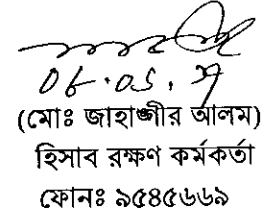 (মোঃ জাহাঙ্গীর আলম)
হিসাব রক্ষণ কর্মকর্তা
ফোনঃ ৯৫৪৫৬৬৯